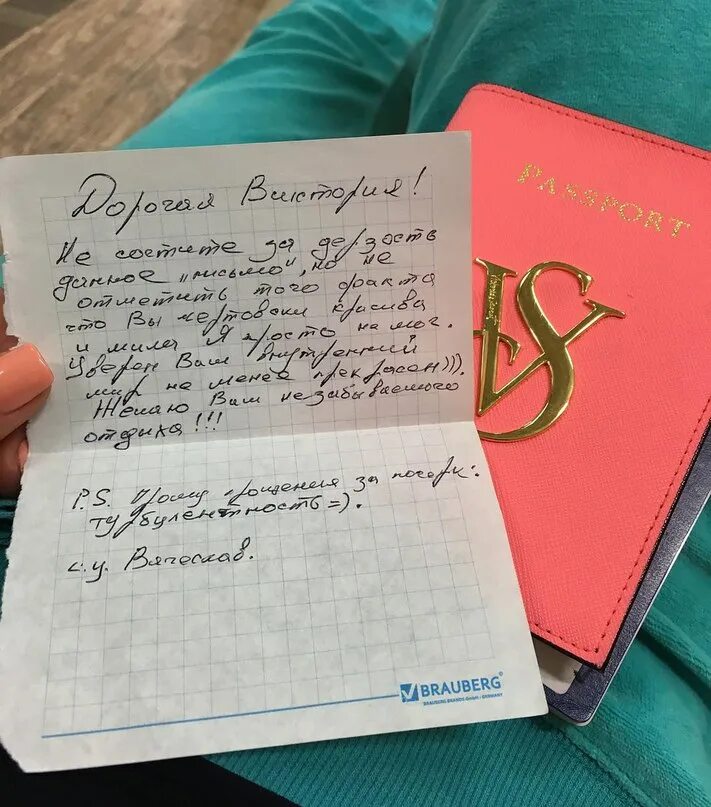 Дорогая Виктория!
Не состите за дерзость
данное "письмо", но не
отметить того факта
что Вы чертовски красива
и мила Я просто на мог.
Уверен Ваш внутренний
мир не менее прекрасен))).
Желаю Вам незабываемого
отдыха!!!
P.S. Прошу прощения за почерк:
турбулентность=).
с.у. Вячеслав.
BRAUBERG®
BRAUBERG BRANDS GmbH • GERMANY
PASSPORT
VS